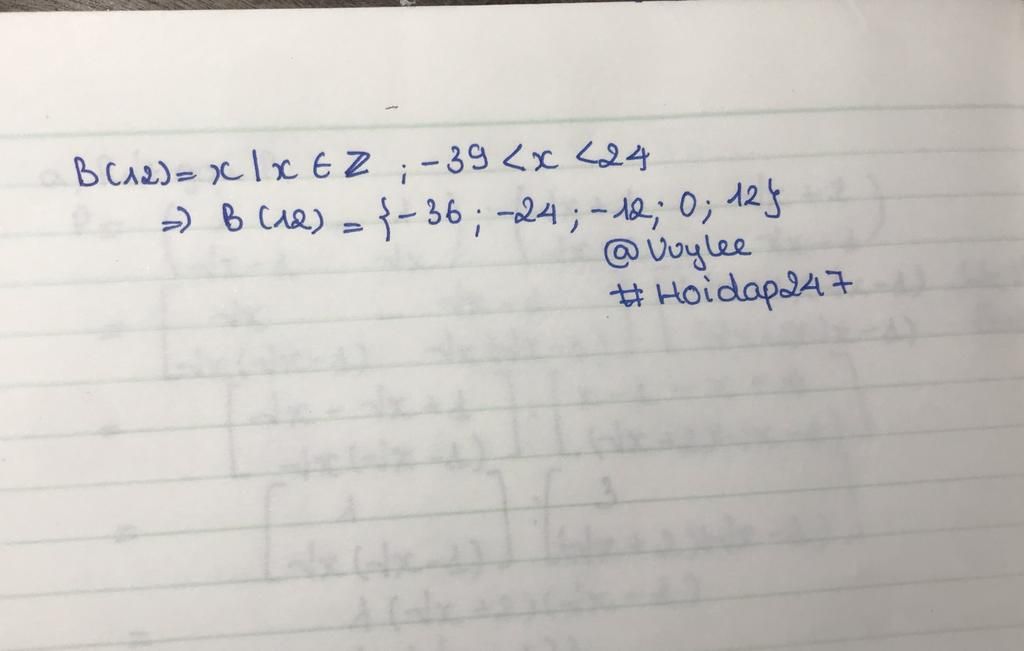 B(12) = x | x ∈ Z ; -39 < x < 24
⇒ B(12) = {-36 ; -24 ; -12 ; 0 ; 12}
@Vuylee
# Hoidap247